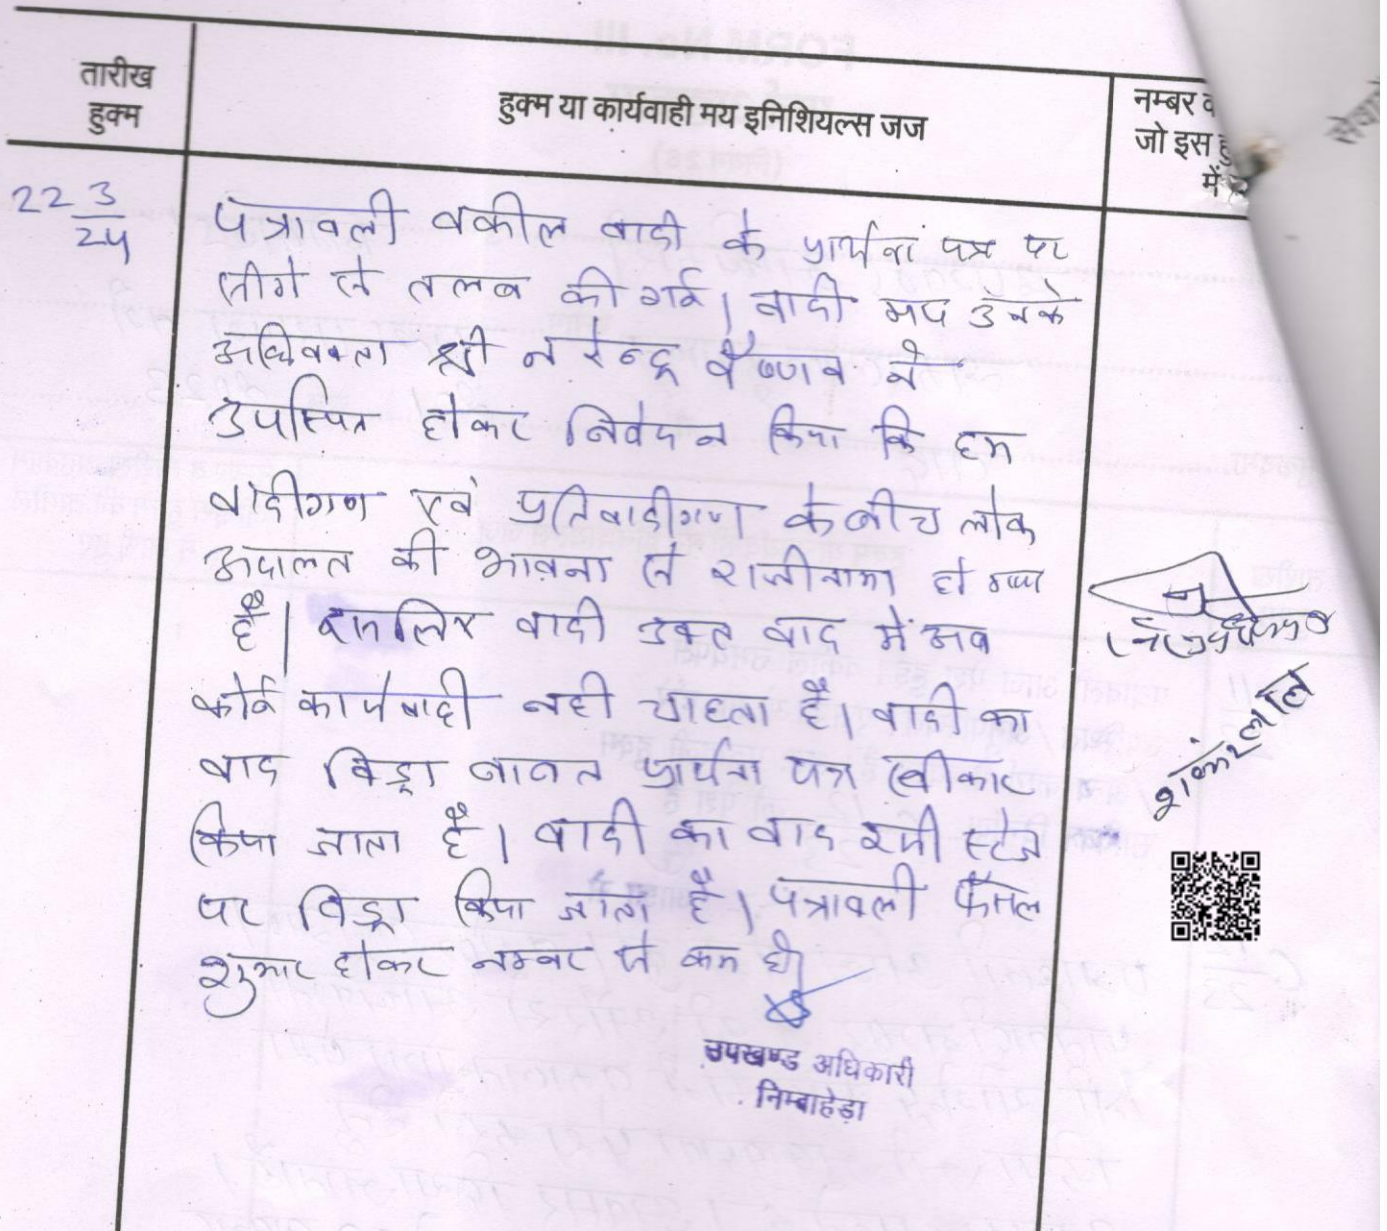 तारीख
हुक्म
हुक्म या कार्यवाही मय इनिशियल्स जज
नम्बर व
जो इस हु
में
22 3/24
पत्रावली वकील वादी के प्रार्थना पत्र पर
सीगे से तलब की गई। वादी मय उनके
अधिवक्ता श्री नरेन्द्र वैष्णव ने
उपस्थित होकर निवेदन किया कि हम
वादीगण एवं प्रतिवादीगण के बीच लोक
अदालत की भावना से राजीनामा हो गया
है। इसलिए वादी उक्त वाद में अब
कोई कार्यवाही नही चाहता है। वादी का
वाद विड्रा बाबत प्रार्थना पत्र स्वीकार
किया जाता है। वादी का वाद इसी स्टेज
पर विड्रा किया जाता है। पत्रावली फैसल
शुमार होकर नम्बर से कम हो।
उपखण्ड अधिकारी
निम्बाहेड़ा
शंकरलाल